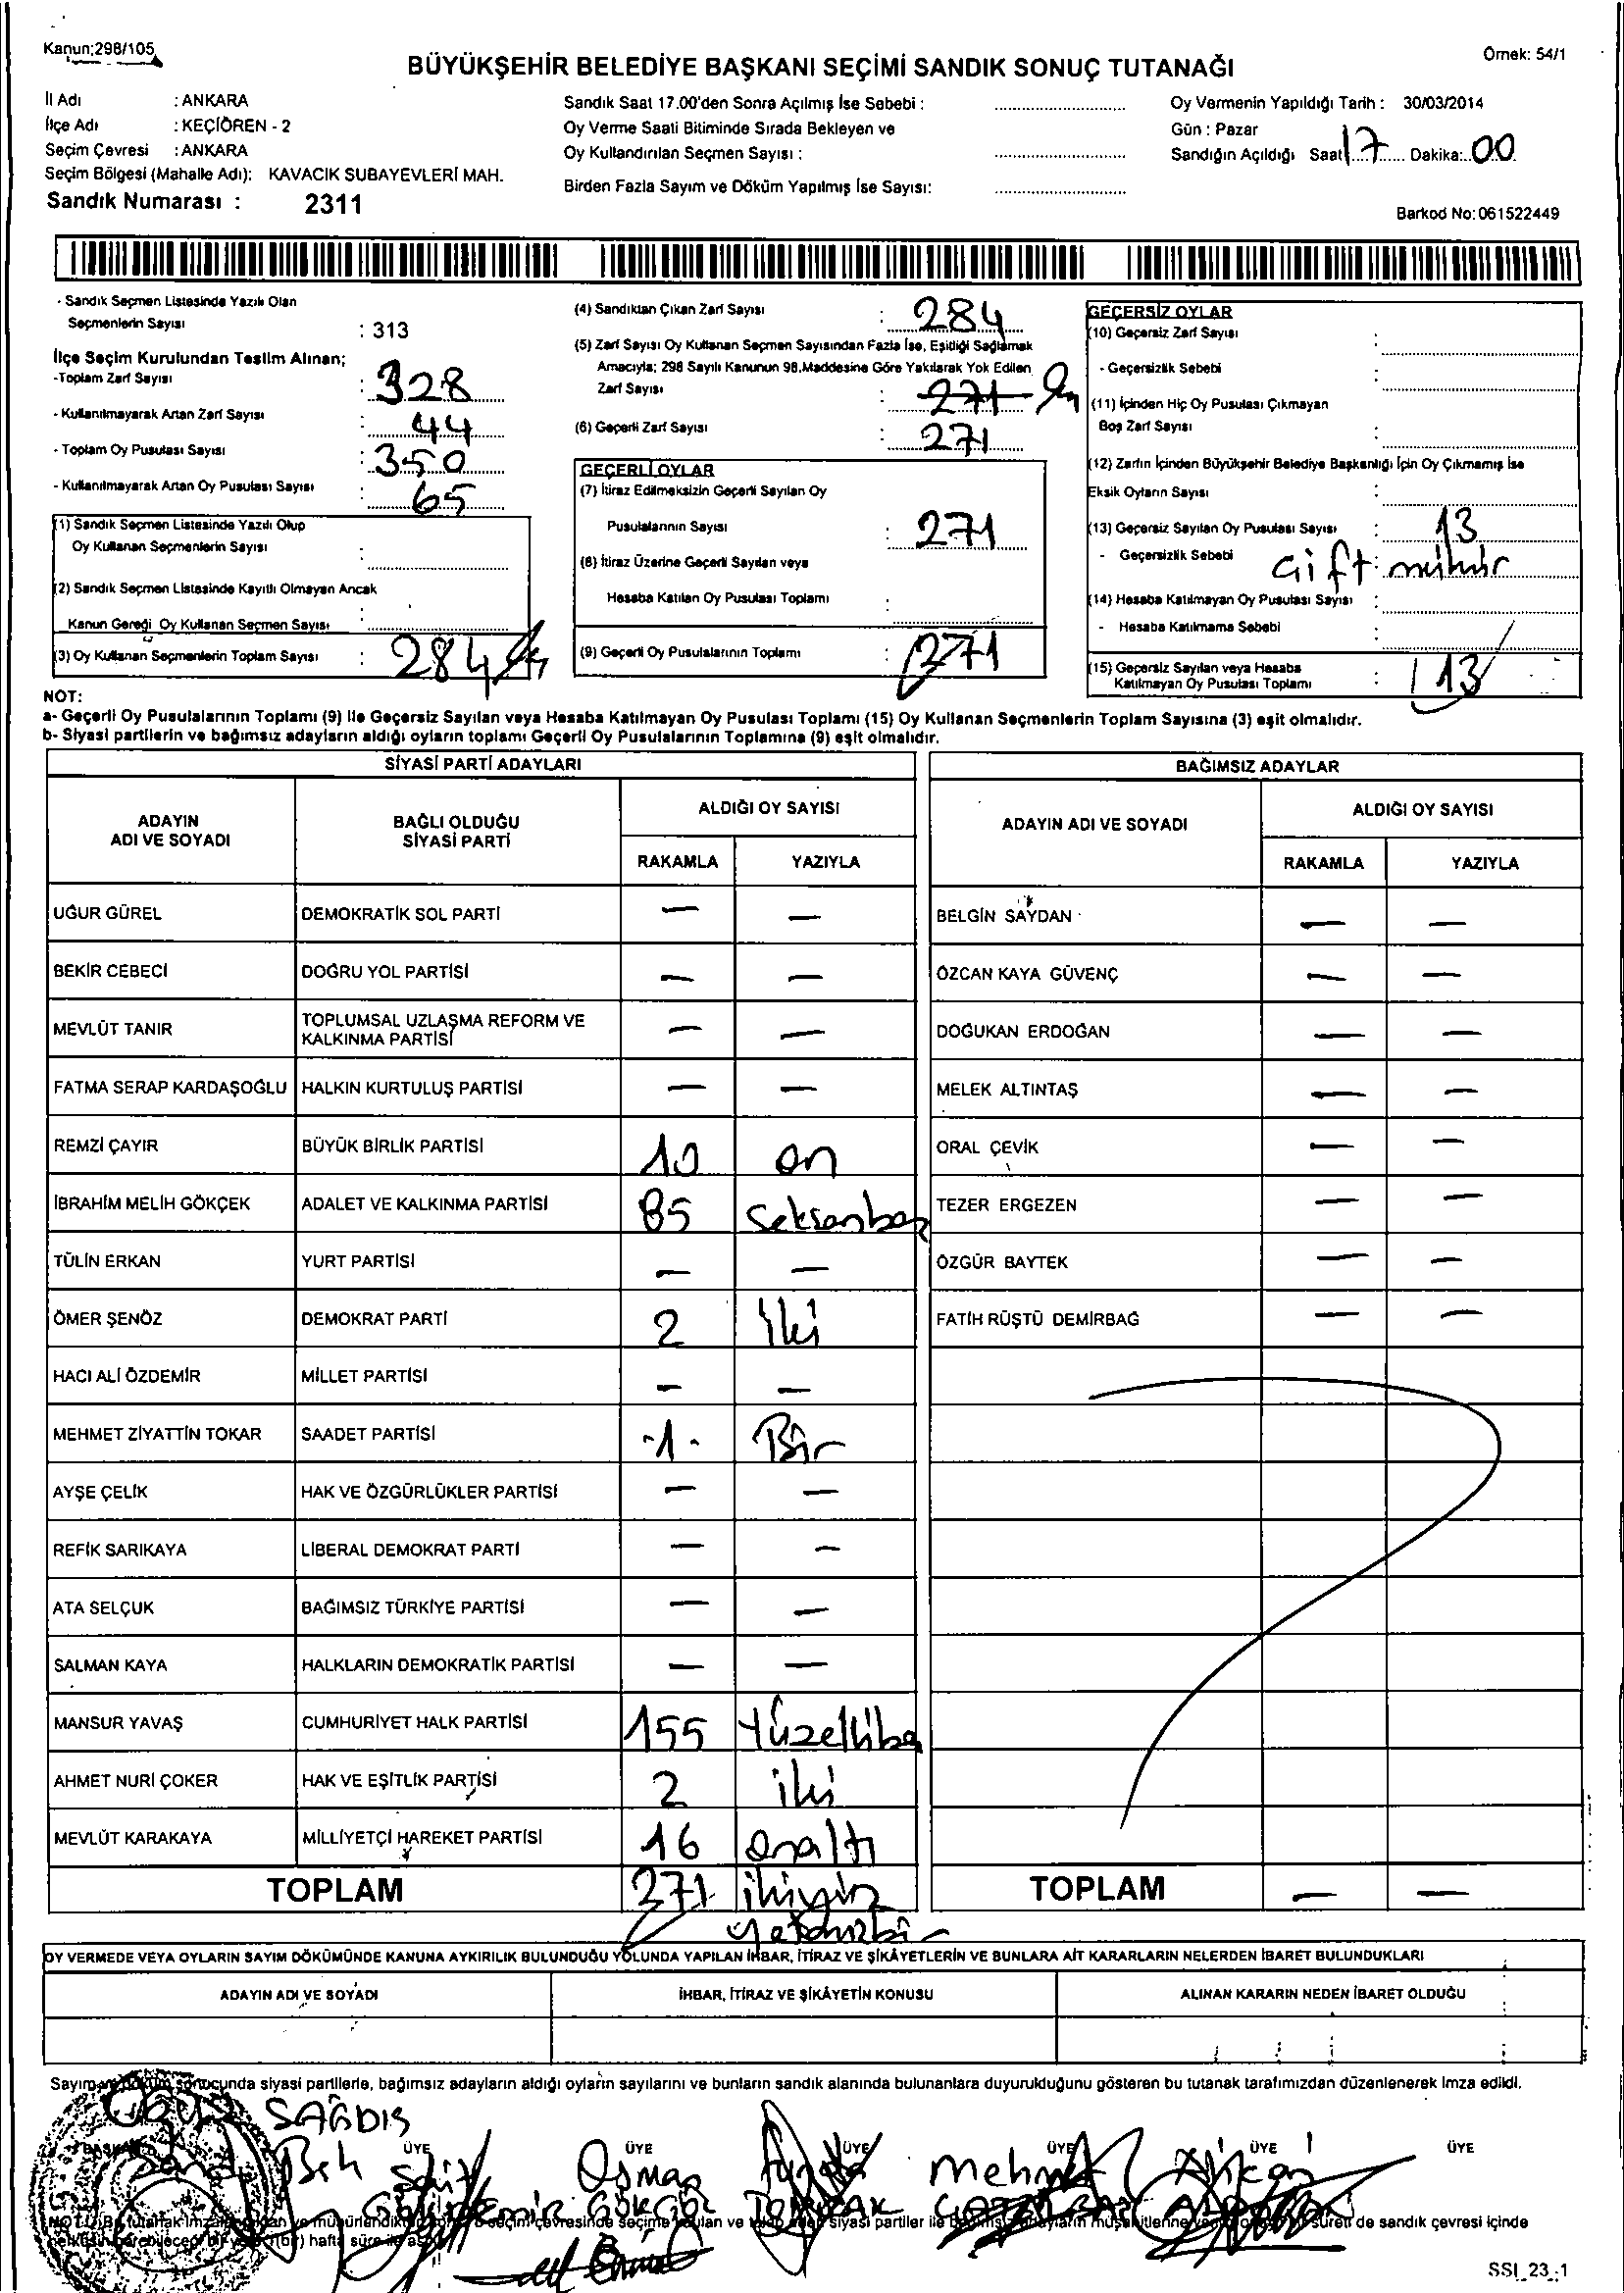 Kanun:298/105
Örnek: 54/1
BÜYÜKŞEHİR BELEDİYE BAŞKANI SEÇİMİ SANDIK SONUÇ TUTANAĞI
İl Adı : ANKARA
İlçe Adı : KEÇİÖREN - 2
Seçim Çevresi : ANKARA
Seçim Bölgesi (Mahalle Adı): KAVACIK SUBAYEVLERİ MAH.
Sandık Numarası : 2311
Sandık Saat 17.00'den Sonra Açılmış İse Sebebi :
Oy Verme Saati Bitiminde Sırada Bekleyen ve
Oy Kullandırılan Seçmen Sayısı :
Birden Fazla Sayım ve Döküm Yapılmış İse Sayısı:
Oy Vermenin Yapıldığı Tarih : 30/03/2014
Gün : Pazar
Sandığın Açıldığı Saat 17 Dakika: 00
Barkod No: 061522449
- Sandık Seçmen Listesinde Yazılı Olan
Seçmenlerin Sayısı : 313
İlçe Seçim Kurulundan Teslim Alınan;
-Toplam Zarf Sayısı : 328
- Kullanılmayarak Artan Zarf Sayısı : 44
- Toplam Oy Pusulası Sayısı : 350
- Kullanılmayarak Artan Oy Pusulası Sayısı : 65
(1) Sandık Seçmen Listesinde Yazılı Olup
Oy Kullanan Seçmenlerin Sayısı :
(2) Sandık Seçmen Listesinde Kayıtlı Olmayan Ancak
Kanun Gereği Oy Kullanan Seçmen Sayısı :
(3) Oy Kullanan Seçmenlerin Toplam Sayısı : 284
(4) Sandıktan Çıkan Zarf Sayısı : 284
(5) Zarf Sayısı Oy Kullanan Seçmen Sayısından Fazla İse, Eşitliği Sağlamak
Amacıyla; 298 Sayılı Kanunun 98.Maddesine Göre Yakılarak Yok Edilen
Zarf Sayısı : 271
(6) Geçerli Zarf Sayısı : 271
GEÇERLİ OYLAR
(7) İtiraz Edilmeksizin Geçerli Sayılan Oy
Pusulalarının Sayısı : 271
(8) İtiraz Üzerine Geçerli Sayılan veya
Hesaba Katılan Oy Pusulası Toplamı :
(9) Geçerli Oy Pusulalarının Toplamı : 271
GEÇERSİZ OYLAR
(10) Geçersiz Zarf Sayısı :
- Geçersizlik Sebebi :
(11) İçinden Hiç Oy Pusulası Çıkmayan
Boş Zarf Sayısı :
(12) Zarfın İçinden Büyükşehir Belediye Başkanlığı İçin Oy Çıkmamış İse
Eksik Oyların Sayısı :
(13) Geçersiz Sayılan Oy Pusulası Sayısı : 13
- Geçersizlik Sebebi : Çift mühür
(14) Hesaba Katılmayan Oy Pusulası Sayısı :
- Hesaba Katılmama Sebebi :
(15) Geçersiz Sayılan veya Hesaba
Katılmayan Oy Pusulası Toplamı : 13
NOT:
a- Geçerli Oy Pusulalarının Toplamı (9) ile Geçersiz Sayılan veya Hesaba Katılmayan Oy Pusulası Toplamı (15) Oy Kullanan Seçmenlerin Toplam Sayısına (3) eşit olmalıdır.
b- Siyasi partilerin ve bağımsız adayların aldığı oyların toplamı Geçerli Oy Pusulalarının Toplamına (9) eşit olmalıdır.
SİYASİ PARTİ ADAYLARI
ADAYIN ADI VE SOYADI BAĞLI OLDUĞU SİYASİ PARTİ ALDIĞI OY SAYISI
RAKAMLA YAZIYLA
UĞUR GÜREL DEMOKRATİK SOL PARTİ — —
BEKİR CEBECİ DOĞRU YOL PARTİSİ — —
MEVLÜT TANIR TOPLUMSAL UZLAŞMA REFORM VE KALKINMA PARTİSİ — —
FATMA SERAP KARDAŞOĞLU HALKIN KURTULUŞ PARTİSİ — —
REMZİ ÇAYIR BÜYÜK BİRLİK PARTİSİ 10 on
İBRAHİM MELİH GÖKÇEK ADALET VE KALKINMA PARTİSİ 85 Seksenbeş
TÜLİN ERKAN YURT PARTİSİ — —
ÖMER ŞENÖZ DEMOKRAT PARTİ 2 iki
HACI ALİ ÖZDEMİR MİLLET PARTİSİ — —
MEHMET ZİYATTİN TOKAR SAADET PARTİSİ -1- Bir
AYŞE ÇELİK HAK VE ÖZGÜRLÜKLER PARTİSİ — —
REFİK SARIKAYA LİBERAL DEMOKRAT PARTİ — —
ATA SELÇUK BAĞIMSIZ TÜRKİYE PARTİSİ — —
SALMAN KAYA HALKLARIN DEMOKRATİK PARTİSİ — —
MANSUR YAVAŞ CUMHURİYET HALK PARTİSİ 155 Yüzellibe
AHMET NURİ ÇOKER HAK VE EŞİTLİK PARTİSİ 2 iki
MEVLÜT KARAKAYA MİLLİYETÇİ HAREKET PARTİSİ 16 onaltı
TOPLAM 271 ikiyüz
yetmişbir
BAĞIMSIZ ADAYLAR
ADAYIN ADI VE SOYADI ALDIĞI OY SAYISI
RAKAMLA YAZIYLA
BELGİN SAYDAN — —
ÖZCAN KAYA GÜVENÇ — —
DOĞUKAN ERDOĞAN — —
MELEK ALTINTAŞ — —
ORAL ÇEVİK — —
TEZER ERGEZEN — —
ÖZGÜR BAYTEK — —
FATİH RÜŞTÜ DEMİRBAĞ — —
TOPLAM — —
OY VERMEDE VEYA OYLARIN SAYIM DÖKÜMÜNDE KANUNA AYKIRILIK BULUNDUĞU YOLUNDA YAPILAN İHBAR, İTİRAZ VE ŞİKÂYETLERİN VE BUNLARA AİT KARARLARIN NELERDEN İBARET BULUNDUKLARI
ADAYIN ADI VE SOYADI İHBAR, İTİRAZ VE ŞİKÂYETİN KONUSU ALINAN KARARIN NEDEN İBARET OLDUĞU
Sayım ve döküm sonucunda siyasi partilerle, bağımsız adayların aldığı oyların sayılarını ve bunların sandık alanında bulunanlara duyurulduğunu gösteren bu tutanak tarafımızdan düzenlenerek imza edildi.
SAĞDIŞ
BAŞKAN ÜYE ÜYE ÜYE ÜYE ÜYE ÜYE
Sait Osman Mehmet
seçim çevresinde seçime katılan ve siyasi partiler ile de sandık çevresi içinde
hafta süre ile
SSI_23_1